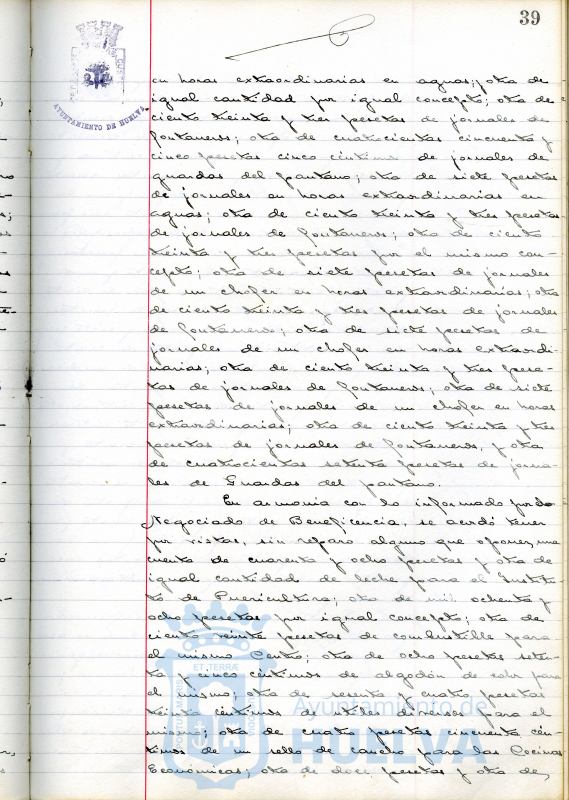 39
AYUNTAMIENTO DE HUELVA
en horas extraordinarias en aguas; otra de
igual cantidad por igual concepto; otra de
ciento treinta y tres pesetas de jornales de
fontaneros; otra de cuatrocientas cincuenta y
cinco pesetas cinco céntimos de jornales de
guardas del pantano; otra de siete pesetas
de jornales en horas extraordinarias en
aguas; otra de ciento treinta y tres pesetas
de jornales de fontaneros; otra de ciento
treinta y tres pesetas por el mismo con-
cepto; otra de siete pesetas de jornales
de un chofer en horas extraordinarias; otra
de ciento treinta y tres pesetas de jornales
de fontaneros; otra de siete pesetas de
jornales de un chofer en horas extraordi-
narias; otra de ciento treinta y tres pese-
tas de jornales de fontaneros; otra de siete
pesetas de jornales de un chofer en horas
extraordinarias; otra de ciento treinta y tres
pesetas de jornales de fontaneros, y otra
de cuatrocientas setenta pesetas de jorna-
les de Guardas del pantano.
En armonia con lo informado por
Negociado de Beneficencia, se acordó tener
por vistas, sin reparo alguno que oponer, una
cuenta de cuarenta y ocho pesetas y otra de
igual cantidad de leche para el Institu-
to de Puericultura; otra de mil ochenta y
ocho pesetas por igual concepto; otra de
ciento veinte pesetas de combustible para
el mismo Centro; otra de ocho pesetas seten-
ta y cinco céntimos de algodón de para
el mismo; otra de sesenta y cuatro pesetas
treinta céntimos de útiles diversos para el
mismo; otra de cuatro pesetas cincuenta cén-
timos de un sello de caucho para las Cocinas
Económicas; otra de doce pesetas y otra de,
ET TERRÆ
Ayuntamiento de
HUELVA